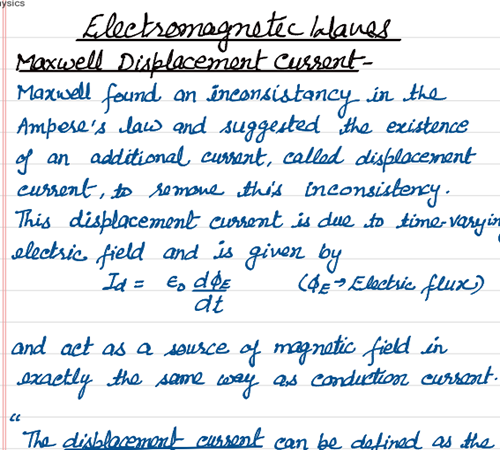 ysics
Electromagnetic Waves
Maxwell Displacement Current-
Maxwell found an inconsistancy in the
Ampere's law and suggested the existence
of an additional current, called displacement
current, to remove this inconsistency.
This displacement current is due to time-varyin
electric field and is given by
Id = ε₀ dϕE/dt (ϕE→Electric flux)
and act as a source of magnetic field in
exactly the same way as conduction current.
“
The displacement current can be defined as the